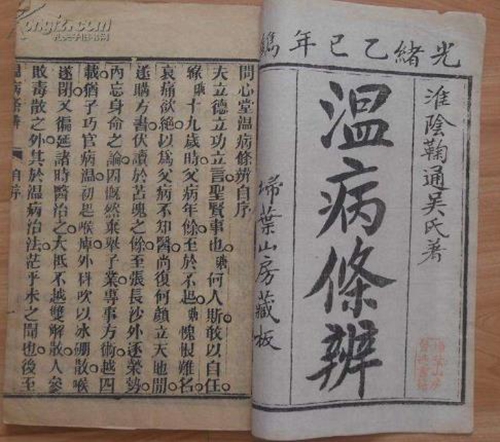 光緒乙巳年鐫
淮陰鞠通吳氏著
溫病條辨
掃葉山房藏板
問心堂溫病條辨自序
夫立德立功立言聖賢事也瑭何人斯敢以自任
緣瑭十九歲時父病年餘至於不起瑭愧恨難名
哀痛欲絕以爲父病不知醫尚復何顏立天地間
遂購方書伏讀於苫塊之餘至張長沙外逐榮勢
內忘身命之論因慨然棄舉子業專事方術越四
載猶子巧官病溫初起喉痺外科吹以冰硼散喉
遂閉又徧延諸時醫治之大抵不越雙解散人參
敗毒散之外其於溫病治法茫乎未之聞也後至
溫病條辨 自序
kongfz.com
孔夫子旧书网